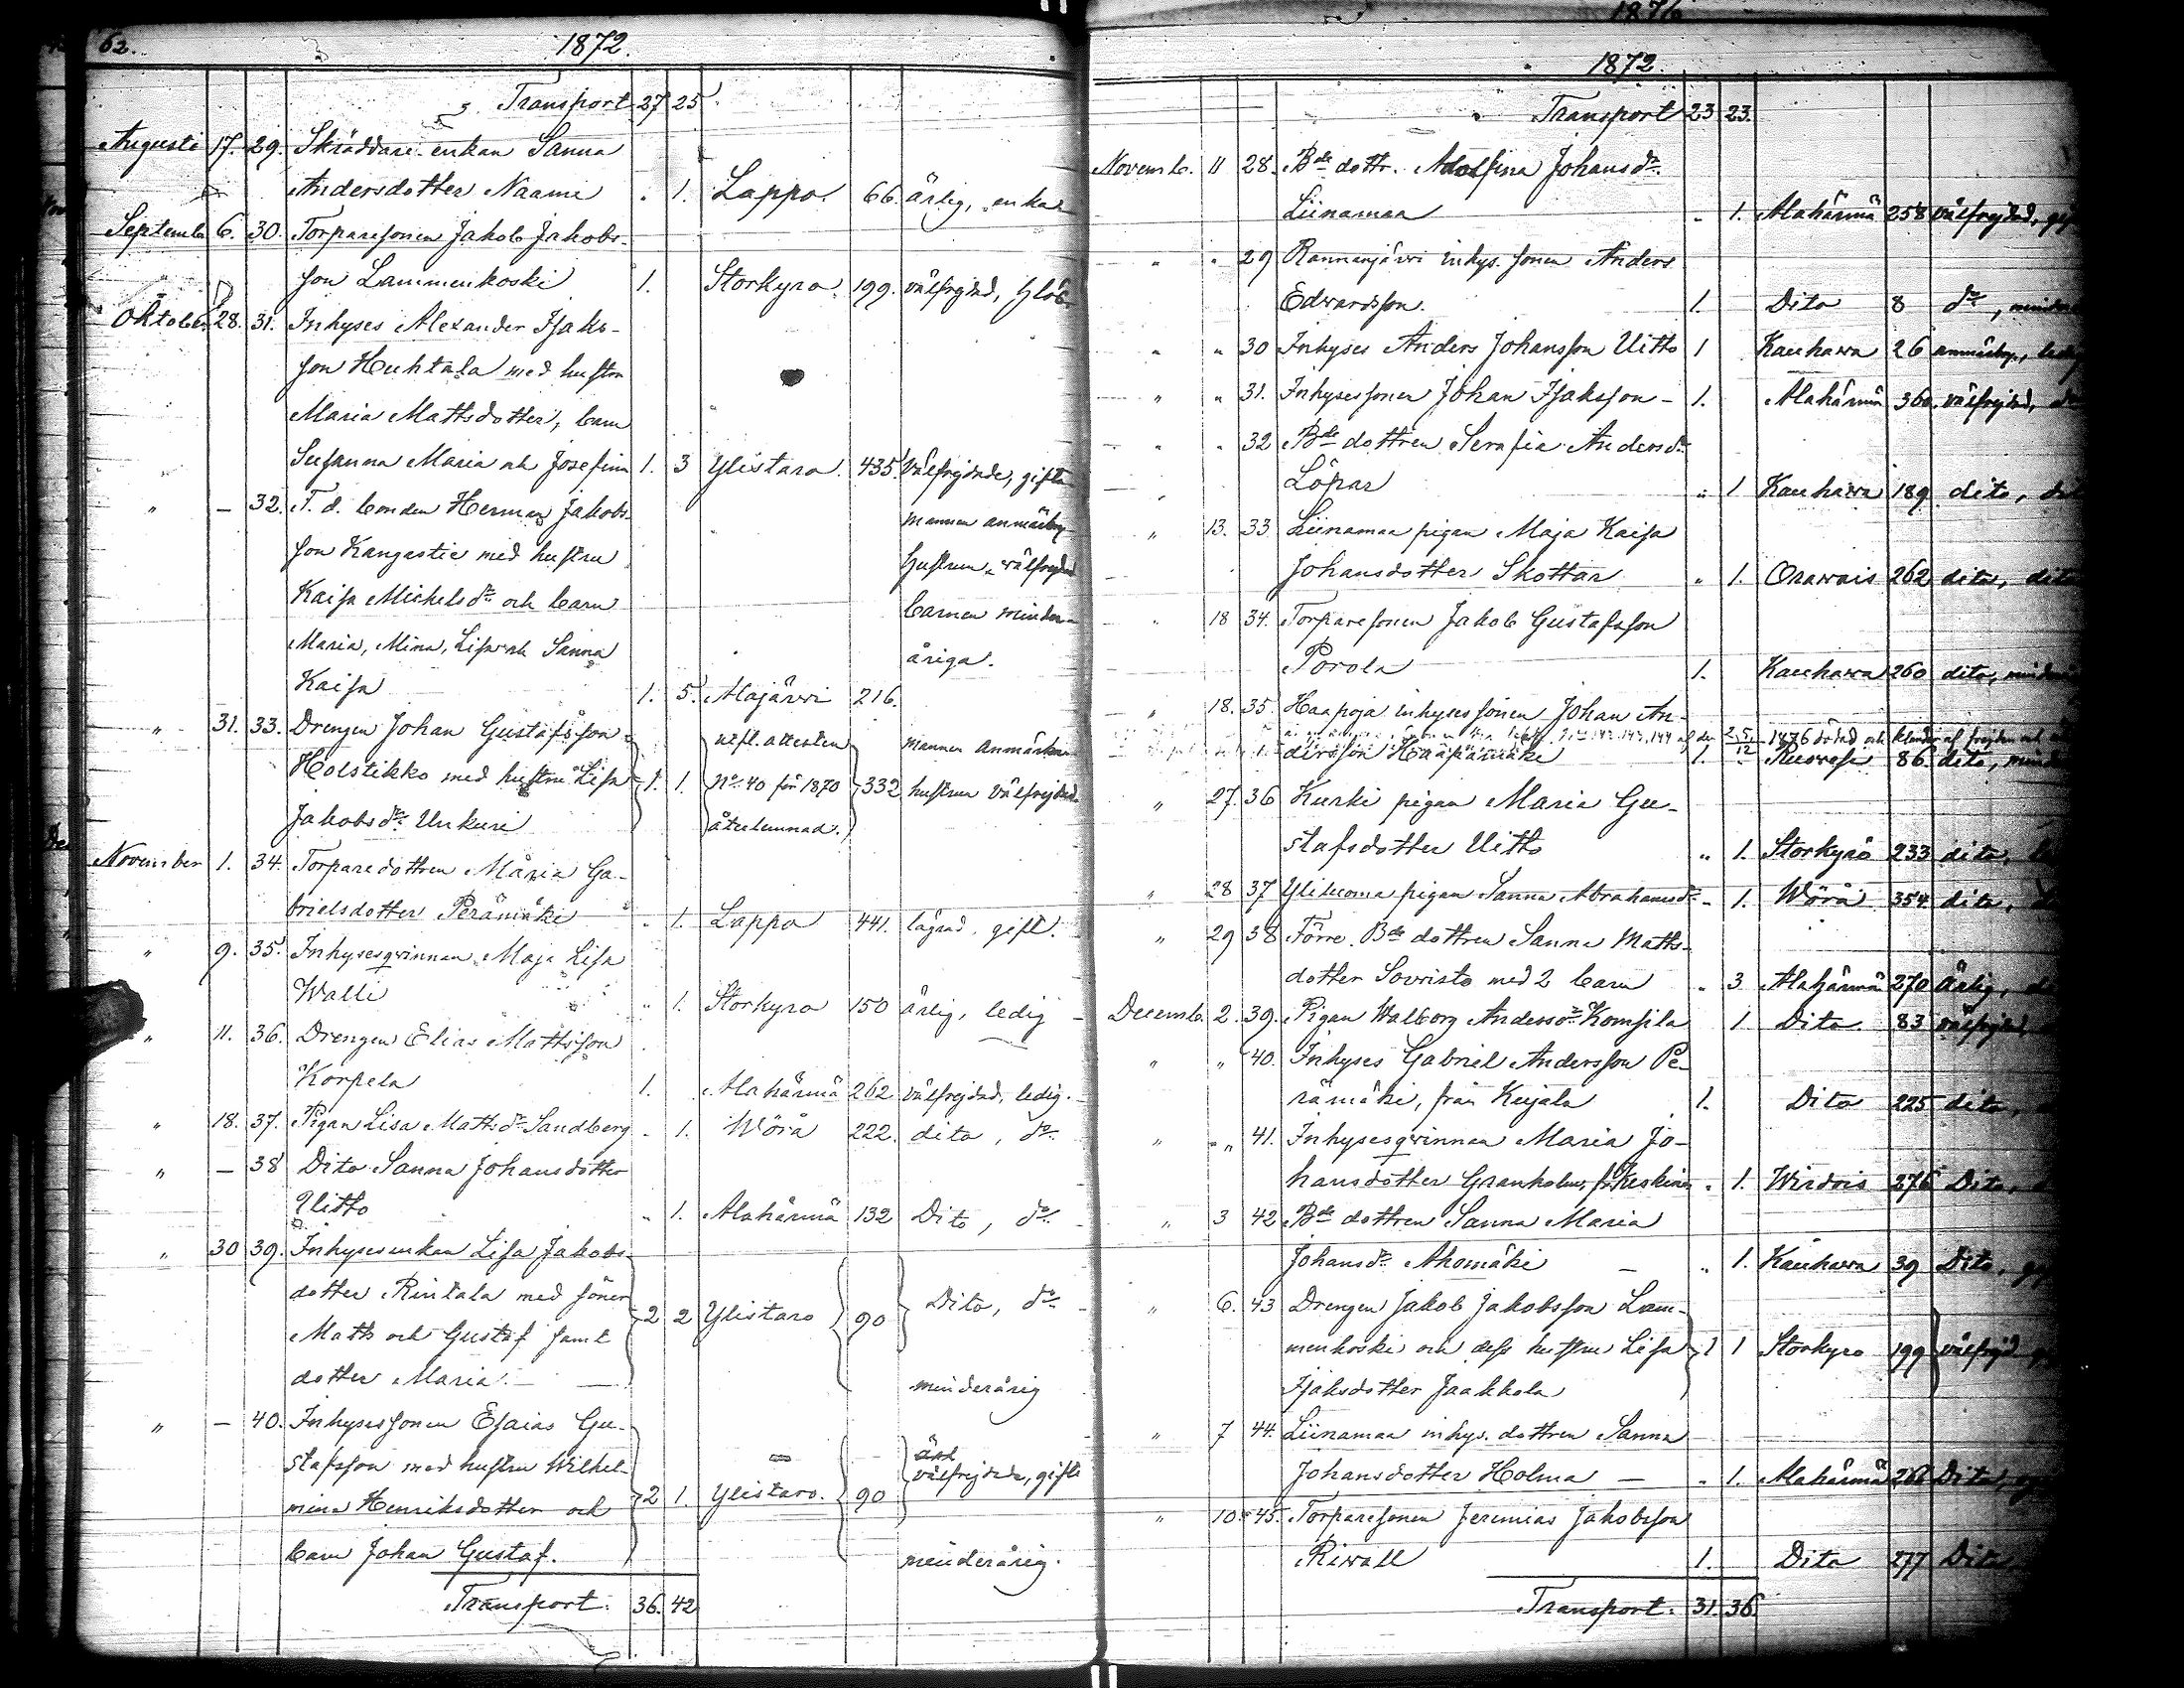 62.
1872.
Transport 27 25
Augusti 17. 29. Skräddare enkan Sanna
Andersdotter Naami " 1. Lappo 66. ärlig, enka
Septemb. 6. 30. Torparesonen Jakob Jakobs-
son Lammenkoski 1. Storkyro 199. välfrejdad,
Oktober 28. 31. Inhyses Alexander Isaks-
son Huhtala med hustru
Maria Mattsdotter, barn
Susanna Maria och Josefina 1. 3 Ylistaro 435 välfrejdade, gifta
" — 32. F. d. bonden Herman Jakobs-
mannen anmärkn.
son Kangastie med hustru
hustrun välfrejdad
Kaisa Michelsdr och barn
barnen minder-
Maria, Mina, Lisa och Sanna
åriga.
Kaisa 1. 5. Alajärvi 216.
" 31. 33. Drengen Johan Gustafsson
utfl. attesten mannen anmärkn.
Holstikko med hustru Lisa 1. 1. No 40 för 1870 332 hustrun välfrejdad
Jakobsdr Unkuri återlemnad.
November 1. 34. Torparedottren Maria Ga-
brielsdotter Perämäki " 1. Lappo 441. lägrad, gift.
" 9. 35. Inhysesqvinnan Maja Lisa
Walli " 1. Storkyro 150 ärlig, ledig
" 11. 36. Drengen Elias Mattsson
Korpela 1. Alahärmä 262 välfrejdad, ledig.
" 18. 37. Pigan Lisa Mattsdr Sandberg " 1. Wörå 222. dito, do
" — 38 Dito Sanna Johansdotter
Uitto " 1. Alahärmä 132 Dito, do
" 30 39. Inhysesenkan Lisa Jakobs-
dotter Rintala med söner
2 2 Ylistaro 90 Dito, do
Matts och Gustaf samt
dotter Maria. —
minderårig
" — 40. Inhysessonen Esaias Gu-
stafsson med hustru Wilhel-
välfrejdade, gifte
mina Henriksdotter och 2 1. Ylistaro. 90
barn Johan Gustaf.
minderårig.
Transport. 36. 42
1876
1872.
Transport 23 23.
Novemb. 11 28. Bde dottr. Adolfina Johansdr
Liinamaa " 1. Alahärmä 258 välfrejdad,
" " 29 Rannanjärvi inhys. sonen Anders
Edwardsson. 1. Dito 8 do,
" " 30 Inhyses Anders Johansson Uitto 1 Kauhawa 26 anmärkn.,
" " 31. Inhysessonen Johan Isaksson — 1. Alahärmä 360. välfrejdad,
" " 32 Bde dottren Serafia Andersdr
Löpar " 1 Kauhawa 189 dito,
" 13. 33 Liinamaa pigan Maja Kaisa
Johansdotter Skottar " 1. Orawais 262 dito, dito
" 18 34. Torparesonen Jakob Gustafsson
Porola 1. Kauhawa 260 dito,
" 18. 35. Haapoja inhysessonen Johan An-
dersson Haapamäki 1. 86. dito,
" 27. 36 Kurki pigan Maria Gu-
stafsdotter Uitto " 1. Storkyrö 233 dito,
" 28 37 Ylituoma pigan Sanna Abrahamsdr " 1. Wörå 354 dito,
" 29 38 Förre Bde dottren Sanna Matts-
dotter Sovristo med 2 barn " 3 Alahärmä 270 Ärlig,
Decemb. 2. 39. Pigan Walborg Andersdr Kompila 1 Dito 83 välfrejdad
" " 40. Inhyses Gabriel Andersson Pe-
rämäki, från Kujala 1. Dito 225 dito,
" " 41. Inhysesqvinnan Maria Jo-
hansdotter Granholm, fr. Keskinen " 1. Wirdois 276 Dito,
" 3 42 Bde dottren Sanna Maria
Johansdr Ahomäki — " 1. Kauhawa 39 Dito,
" 6. 43 Drengen Jakob Jakobsson Lam-
menkoski och dess hustru Lisa 1 1 Storkyro 199 välfrejd
Isaksdotter Jaakkola
" 7 44. Liinamaa inhys. dottren Sanna
Johansdotter Holma — " 1. Alahärmä 261 Dito,
" 10. 45. Torparesonen Jeremias Jakobsson
Riwall 1. Dito 277 Dito
Transport. 31. 36.